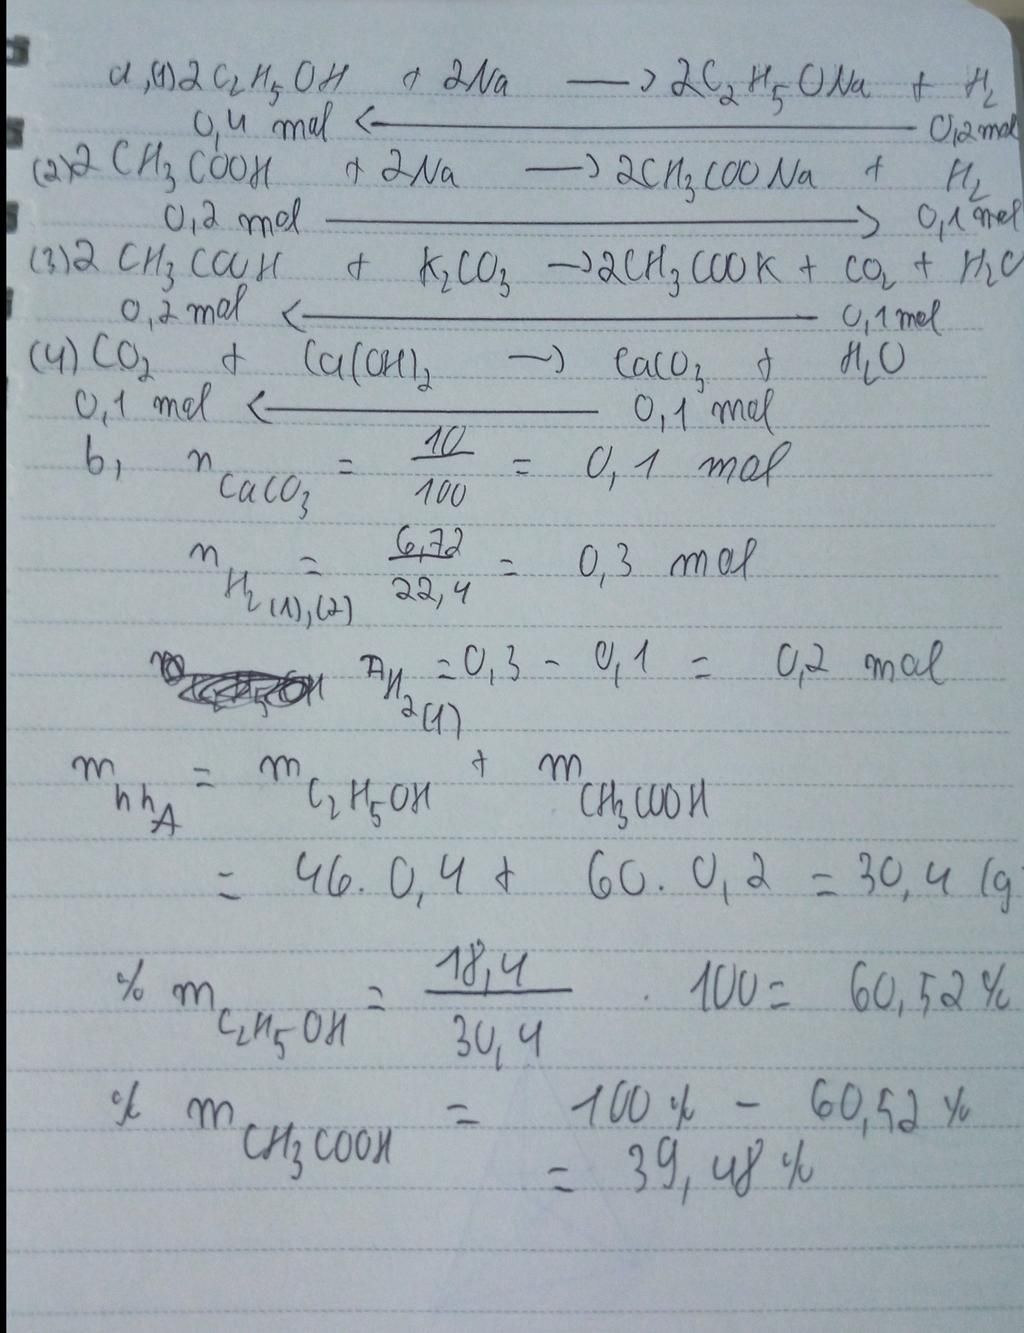 a, (1) 2C₂H₅OH + 2Na → 2C₂H₅ONa + H₂
0,4 mol ← 0,2 mol
(2) 2CH₃COOH + 2Na → 2CH₃COONa + H₂
0,2 mol → 0,1 mol
(3) 2CH₃COOH + K₂CO₃ → 2CH₃COOK + CO₂ + H₂O
0,2 mol ← 0,1 mol
(4) CO₂ + Ca(OH)₂ → CaCO₃ + H₂O
0,1 mol ← 0,1 mol
b, n CaCO₃ = 10/100 = 0,1 mol
n H₂ (1),(2) = 6,72/22,4 = 0,3 mol
n H₂ (1) = 0,3 - 0,1 = 0,2 mol
m hh A = m C₂H₅OH + m CH₃COOH
= 46. 0,4 + 60. 0,2 = 30,4 (g
% m C₂H₅OH = 18,4/30,4 . 100 = 60,52%
% m CH₃COOH = 100% - 60,52%
= 39,48%